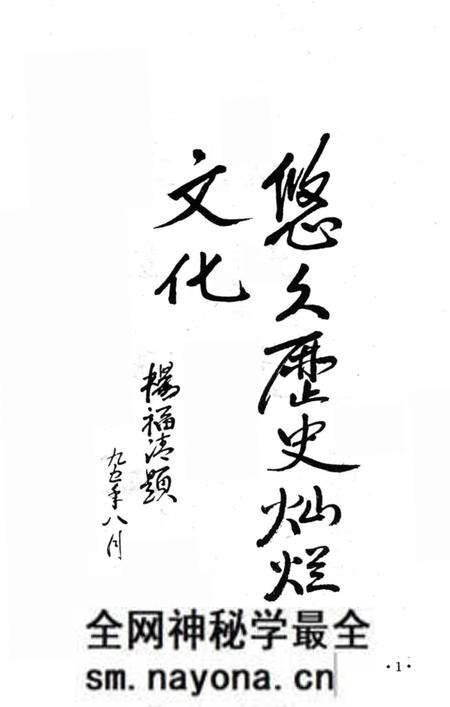 悠久歷史灿烂
文化
楊福清题
九五年八月
全网神秘学最全
sm.nayona.cn
·1·